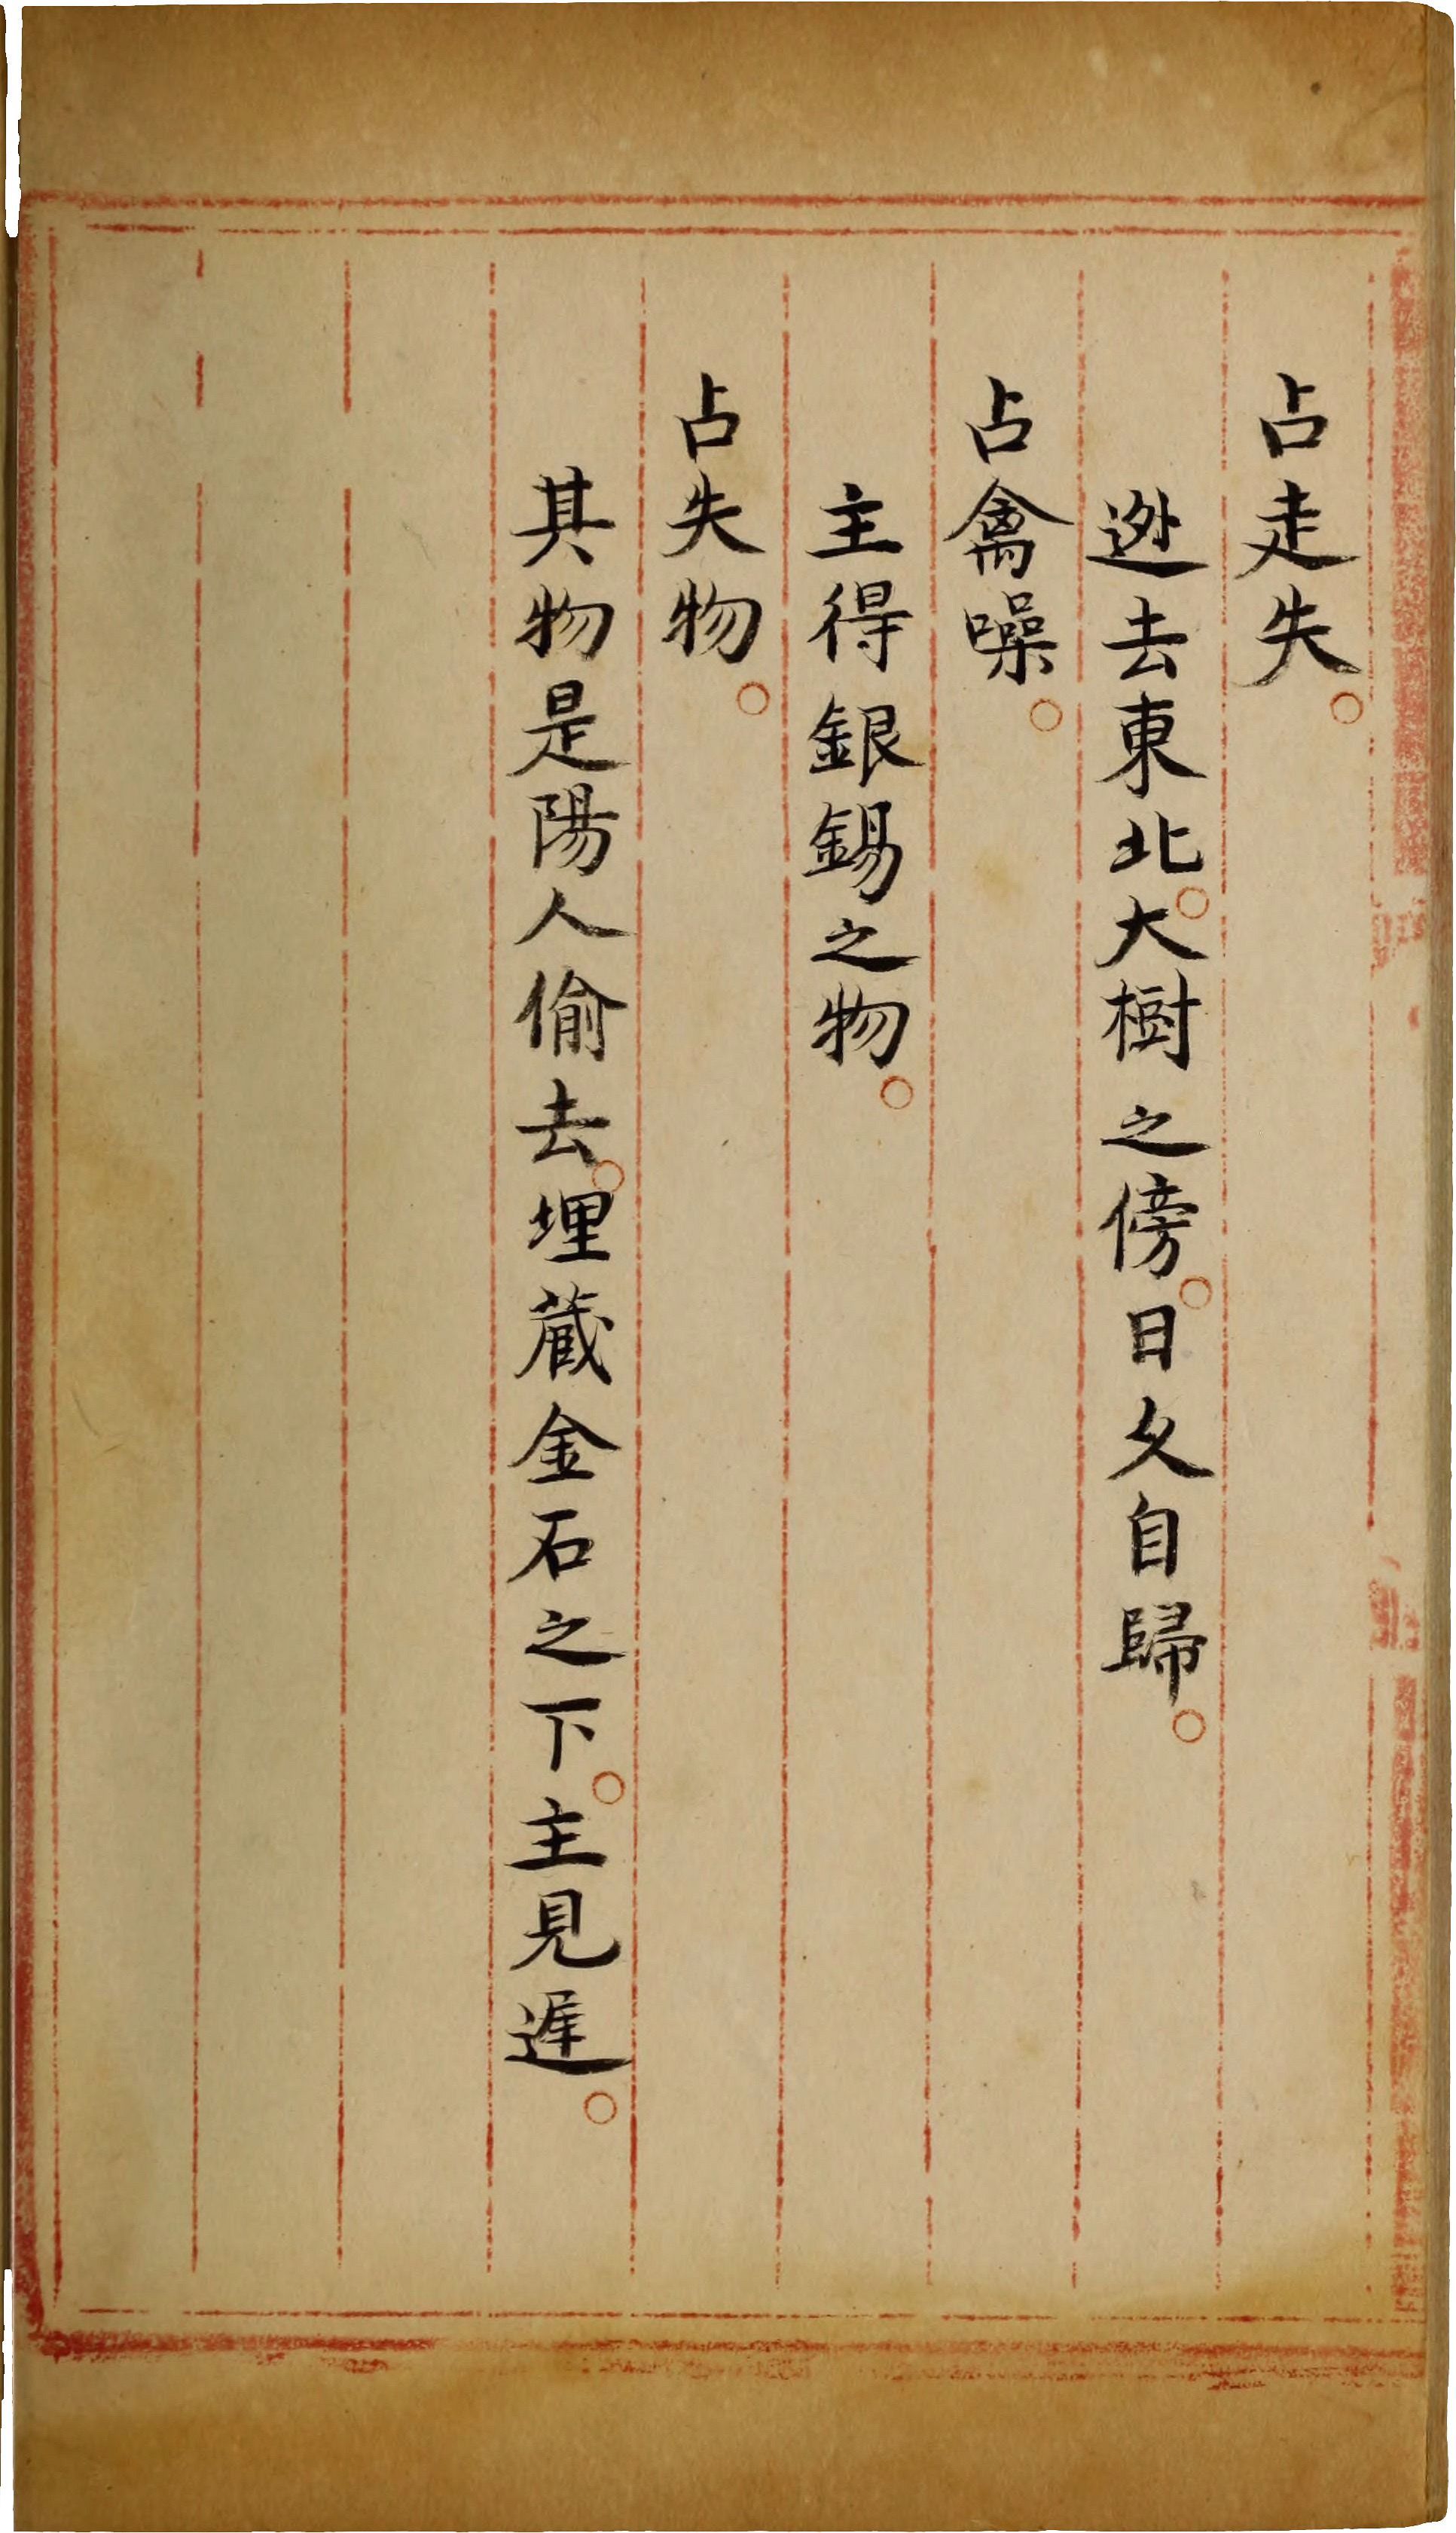 占走失。
逃去東北。大樹之傍。日久自歸。
占禽噪。
主得銀錫之物。
占失物。
其物是陽人偷去。埋藏金石之下。主見遲。